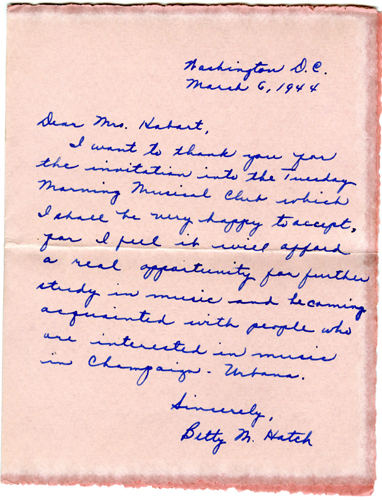 Washington D.C.
March 6, 1944
Dear Mrs. Hobart,
I want to thank you for
the invitation into the Tuesday
Morning Musical Club which
I shall be very happy to accept,
for I feel it will afford
a real opportunity for further
study in music and becoming
acquainted with people who
are interested in music
in Champaign - Urbana.
Sincerely,
Betty M. Hatch